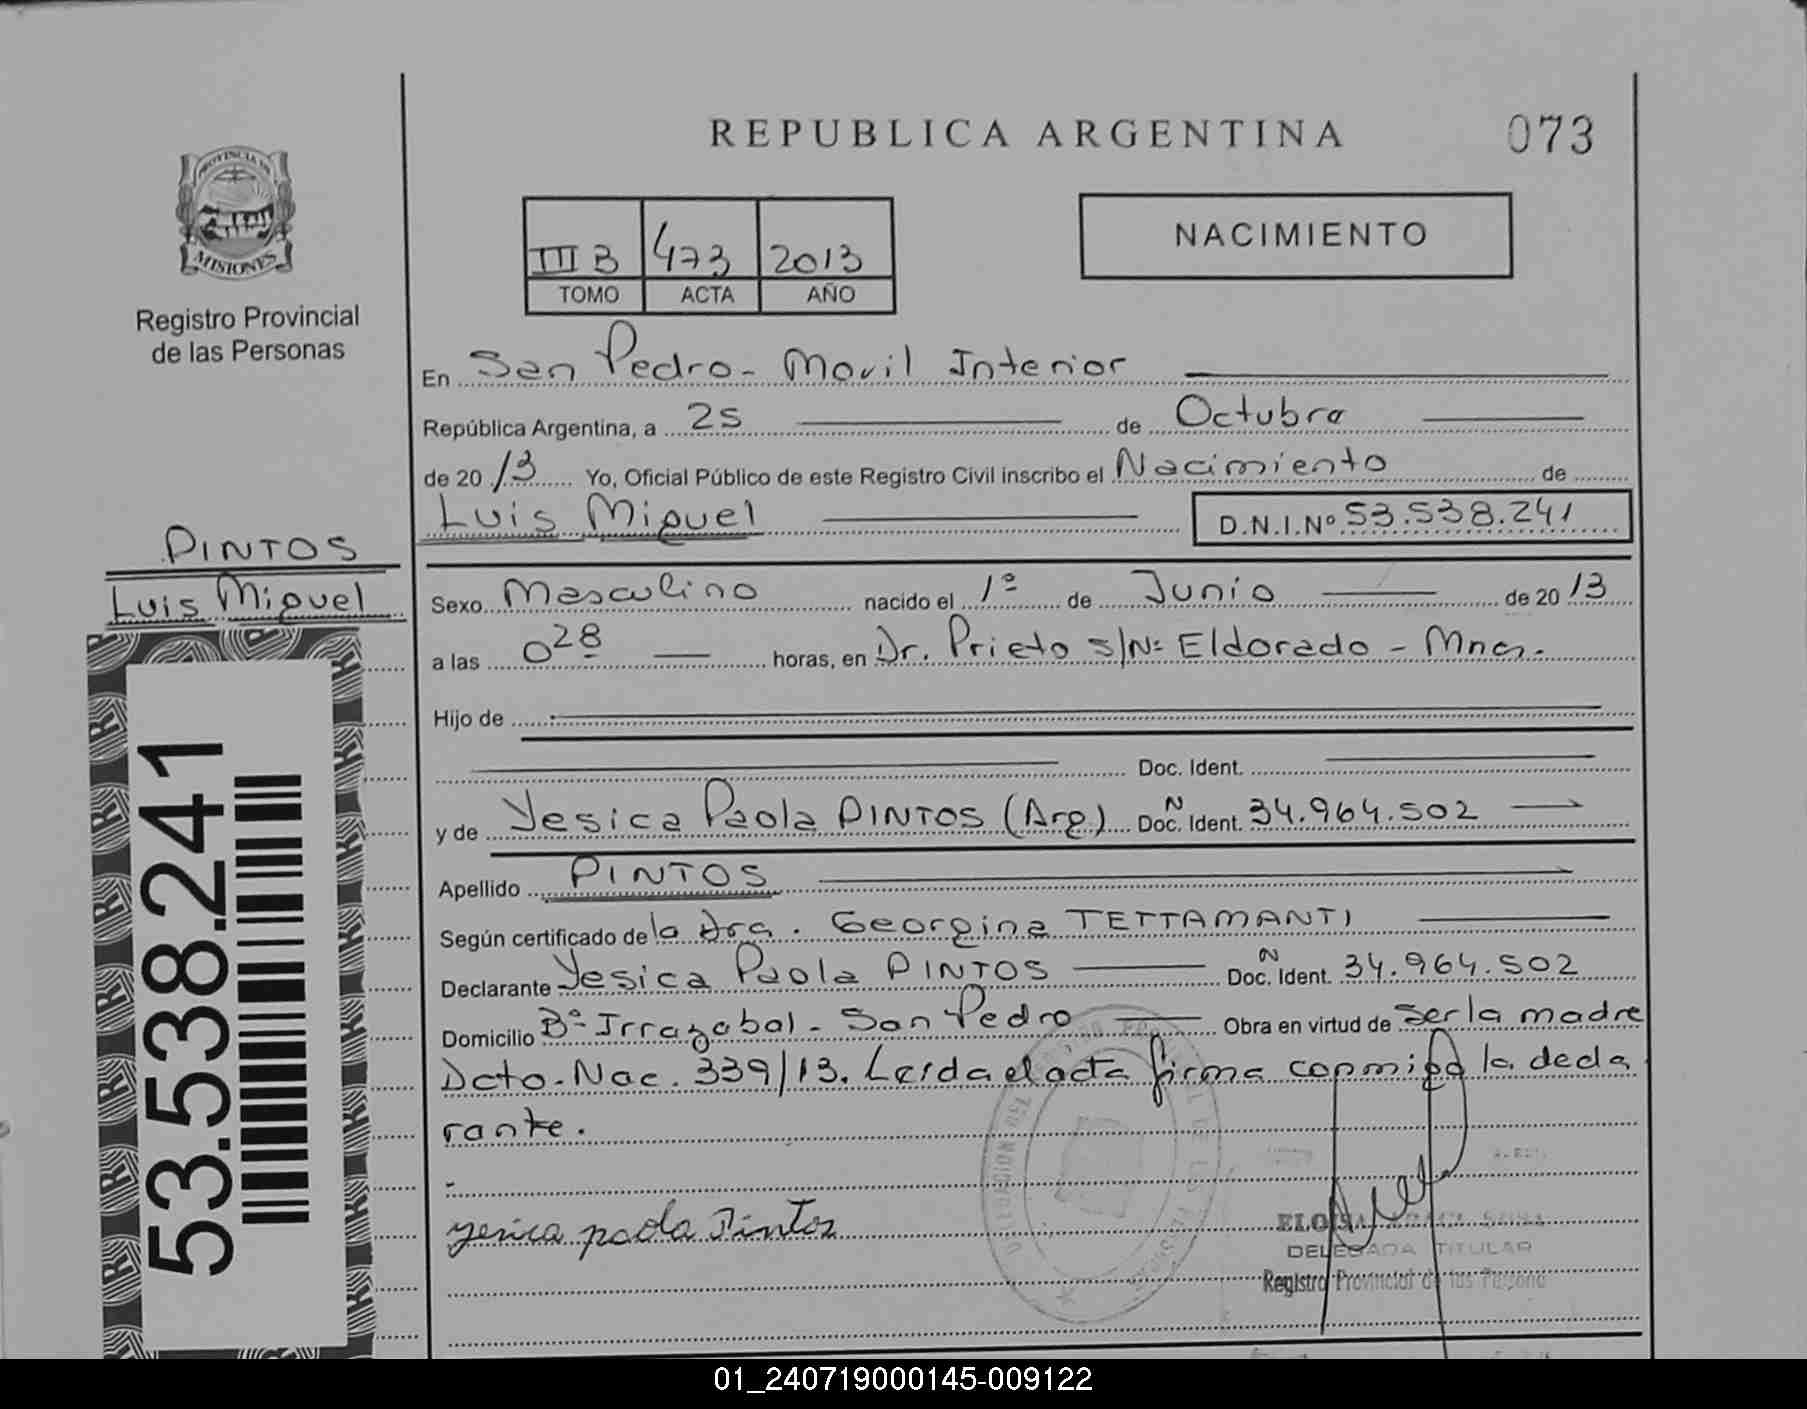 REPUBLICA ARGENTINA
073
PROVINCIA DE
MISIONES
Registro Provincial
de las Personas
III B 473 2013
TOMO ACTA AÑO
NACIMIENTO
En San Pedro - Movil Interior
República Argentina, a 25 de Octubre
de 2013 Yo, Oficial Público de este Registro Civil inscribo el Nacimiento de
Luis Miguel D.N.I.Nº 53.538.241
PINTOS
Luis Miguel
Sexo Masculino nacido el 1º de Junio de 2013
a las 028 horas, en Dr. Prieto s/Nº Eldorado - Mnes.
Hijo de
Doc. Ident.
y de Yesica Paola PINTOS (Arg) Doc. N Ident. 34.964.502
Apellido PINTOS
Según certificado de la Dra. Georgina TETTAMANTI
Declarante Yesica Paola PINTOS Doc. N Ident. 34.964.502
Domicilio Bº Irrazabal - San Pedro Obra en virtud de ser la madre
Dcto. Nac. 339/13. Leída el acta firma conmigo la decla
rante.
yesica paola Pintos
DELEGADA TITULAR
Registro Provincial de las Persona
53.538.241
01_240719000145-009122